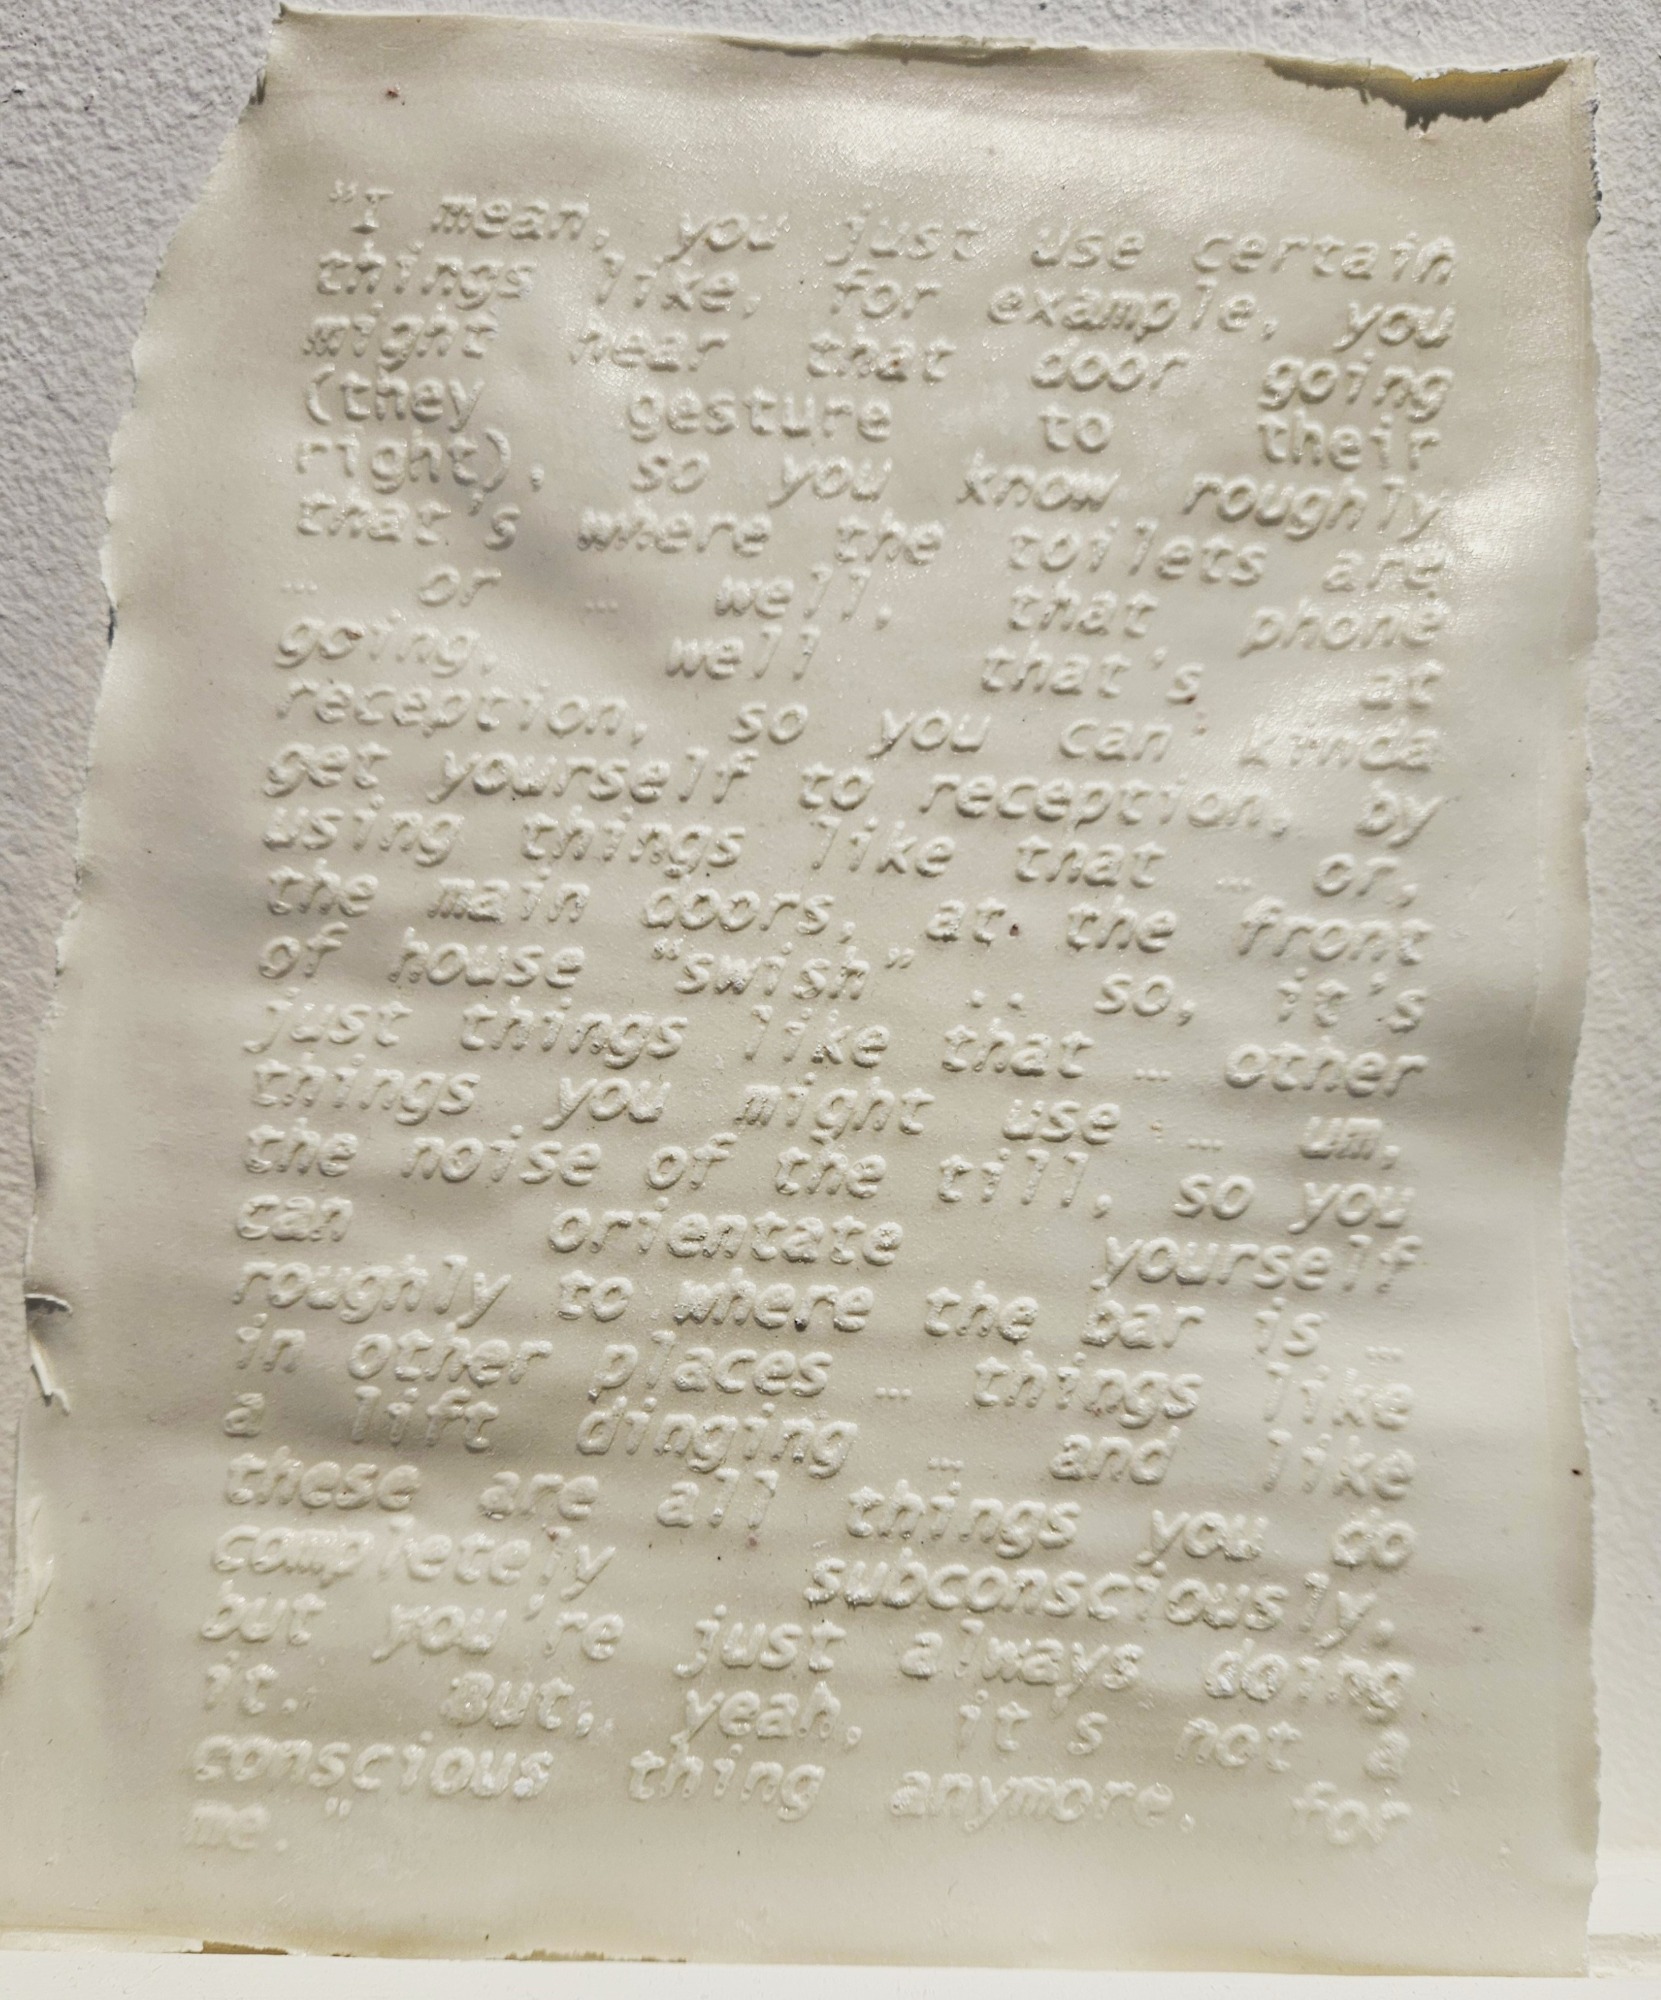 "I mean, you just use certain
things like, for example, you
might hear that door going
(they gesture to their
right), so you know roughly
that's where the toilets are
… or … well, that phone
going, well that's at
reception, so you can kinda
get yourself to reception, by
using things like that … or,
the main doors, at the front
of house “swish” .. so, it's
just things like that … other
things you might use … um,
the noise of the till, so you
can orientate yourself
roughly to where the bar is …
in other places … things like
a lift dinging … and like
these are all things you do
completely subconsciously,
but you're just always doing
it. But, yeah, it's not a
conscious thing anymore, for
me."